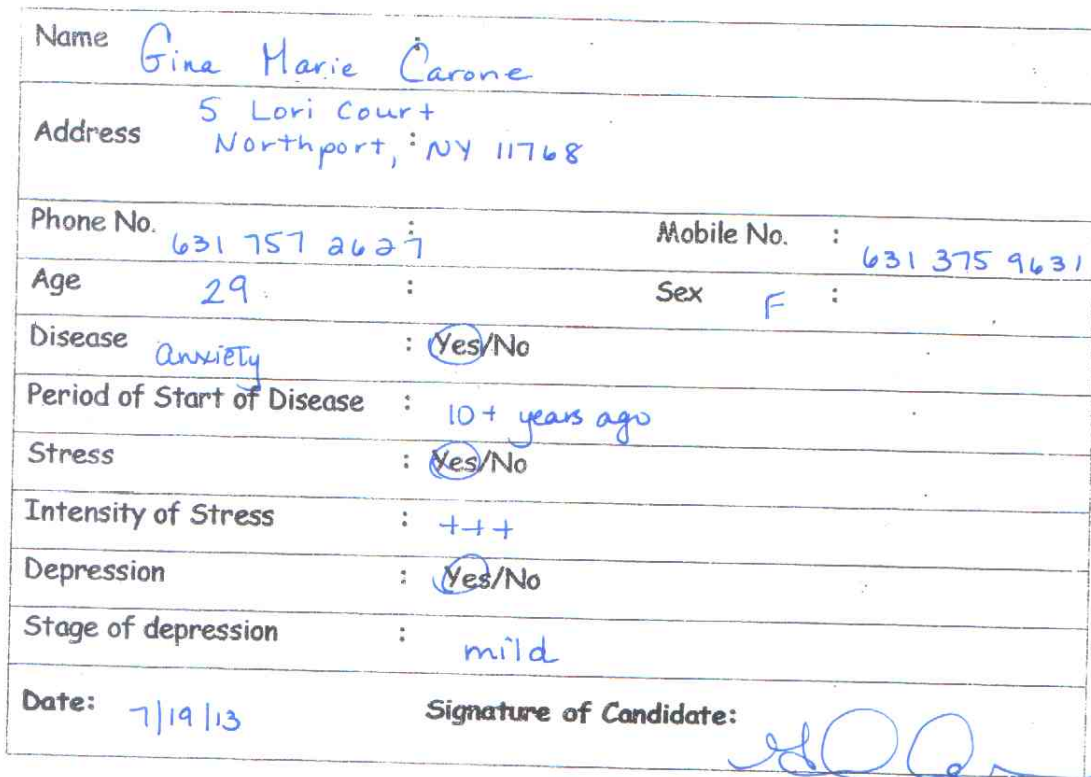 Name Gina Marie Carone :
5 Lori Court
Address Northport, : NY 11768
Phone No. 631 757 2627 : Mobile No. : 631 375 9631
Age 29 : Sex F :
Disease anxiety : Yes/No
Period of Start of Disease : 10+ years ago
Stress : Yes/No
Intensity of Stress : +++
Depression : Yes/No
Stage of depression : mild
Date: 7/19/13 Signature of Candidate: